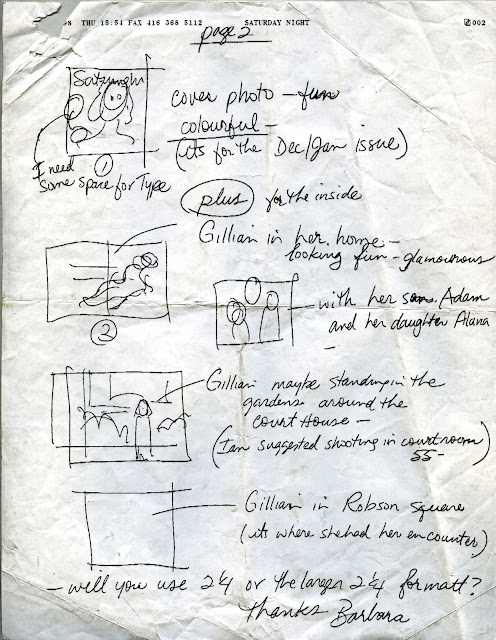 98 THU 15:54 FAX 416 368 5112 SATURDAY NIGHT 002
page 2
SatNight
cover photo – fun
colourful –
(its for the Dec/Jan issue)
I need
some space for Type
1
plus for the inside
Gillian in her home –
looking fun – glamourous
2
– with her son Adam
and her daughter Alana
–
Gillian maybe standing in the
gardens around the
Court House –
(Ian suggested shooting in courtroom
55 –)
Gillian in Robson Square
(its where she had her encounter)
– well you use 2 1/4 or the larger 2 1/4 formatt?
Thanks Barbara